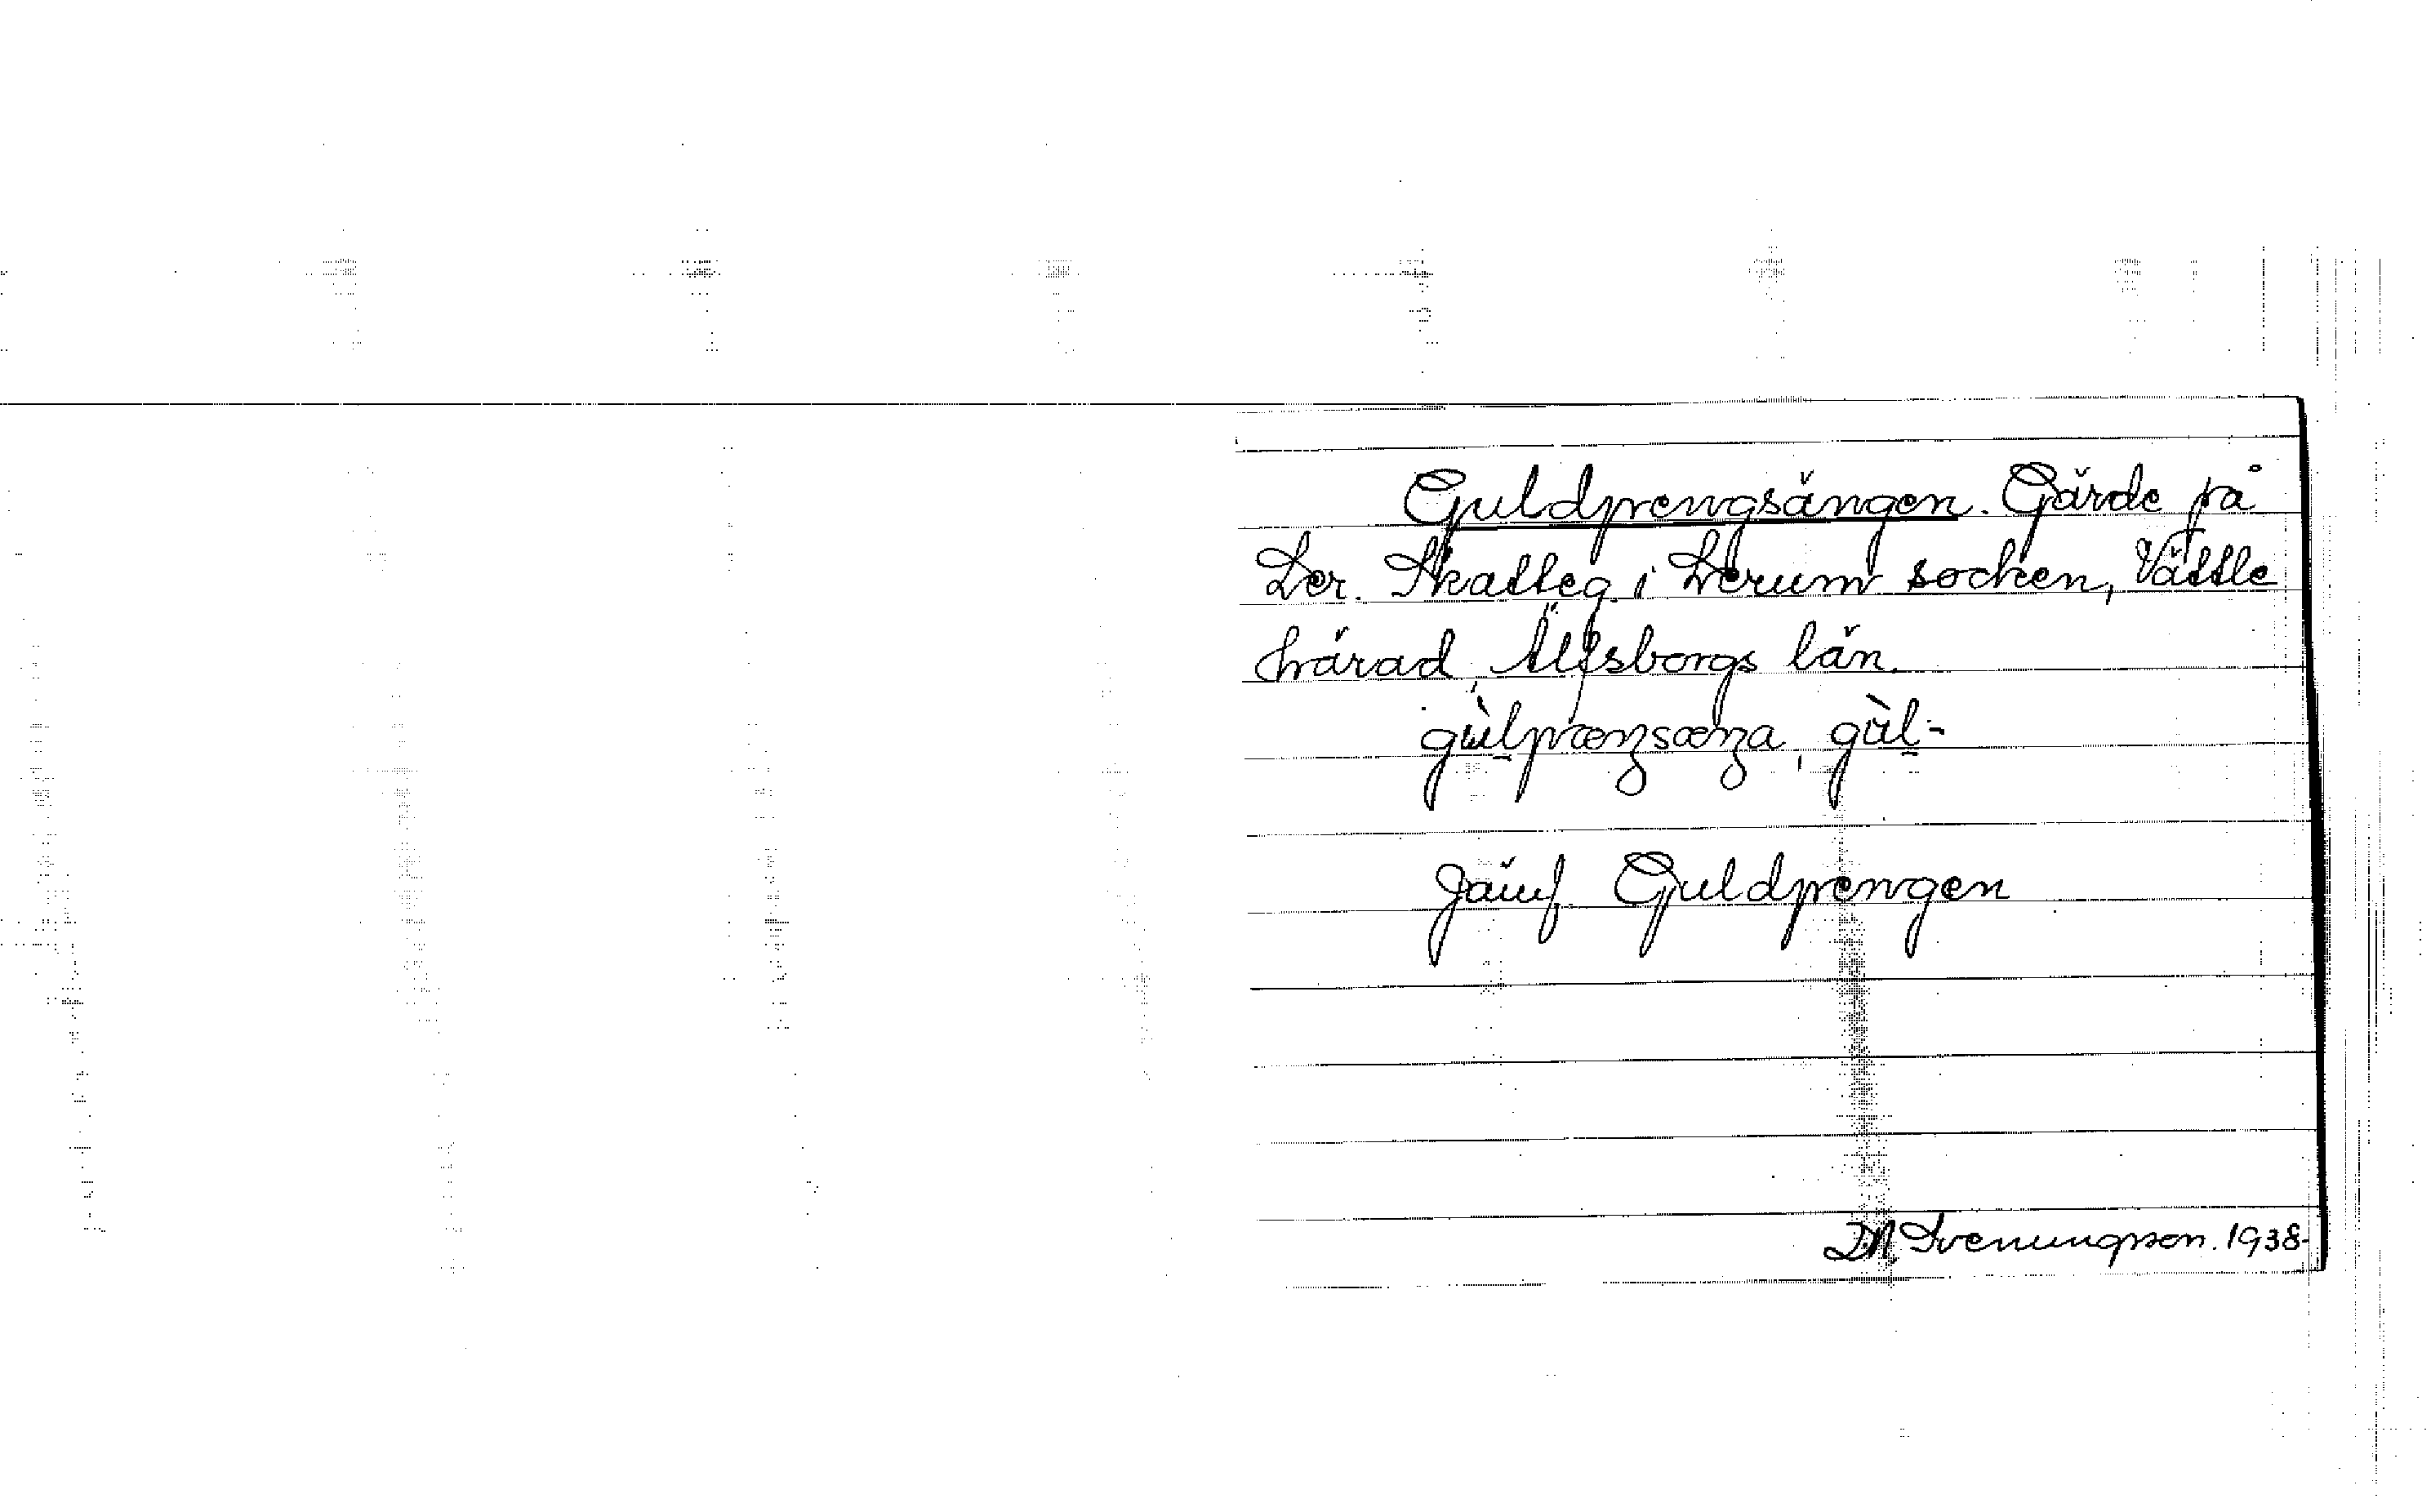 Guldprengsängen. Gärde på
Ler. Skatteg. i Lerum socken, Vättle
härad, Älfsborgs län.
gùlpræŋsæŋa, gùl-
Jämf. Guldprengen
D.N. Svenungsson. 1938.